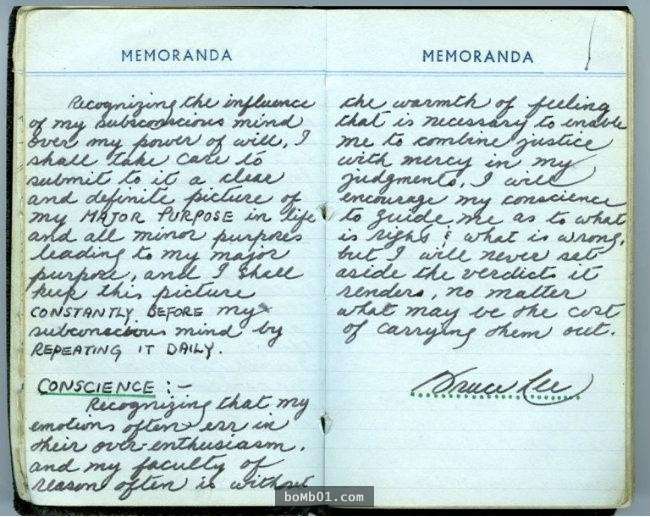 MEMORANDA
Recognizing the influence
of my subconscious mind
over my power of will, I
shall take care to
submit to it a clear
and definite picture of
my MAJOR PURPOSE in life
and all minor purposes
leading to my major
purpose, and I shall
keep this picture
CONSTANTLY BEFORE my
subconscious mind by
REPEATING IT DAILY.
CONSCIENCE :-
Recognizing that my
emotions often err in
their over-enthusiasm,
and my faculty of
reason often is without
MEMORANDA
the warmth of feeling
that is necessary to enable
me to combine justice
with mercy in my
judgments, I will
encourage my conscience
to guide me as to what
is right & what is wrong,
but I will never set
aside the verdicts it
renders, no matter
what may be the cost
of carrying them out.
Bruce Lee
boMb01.com